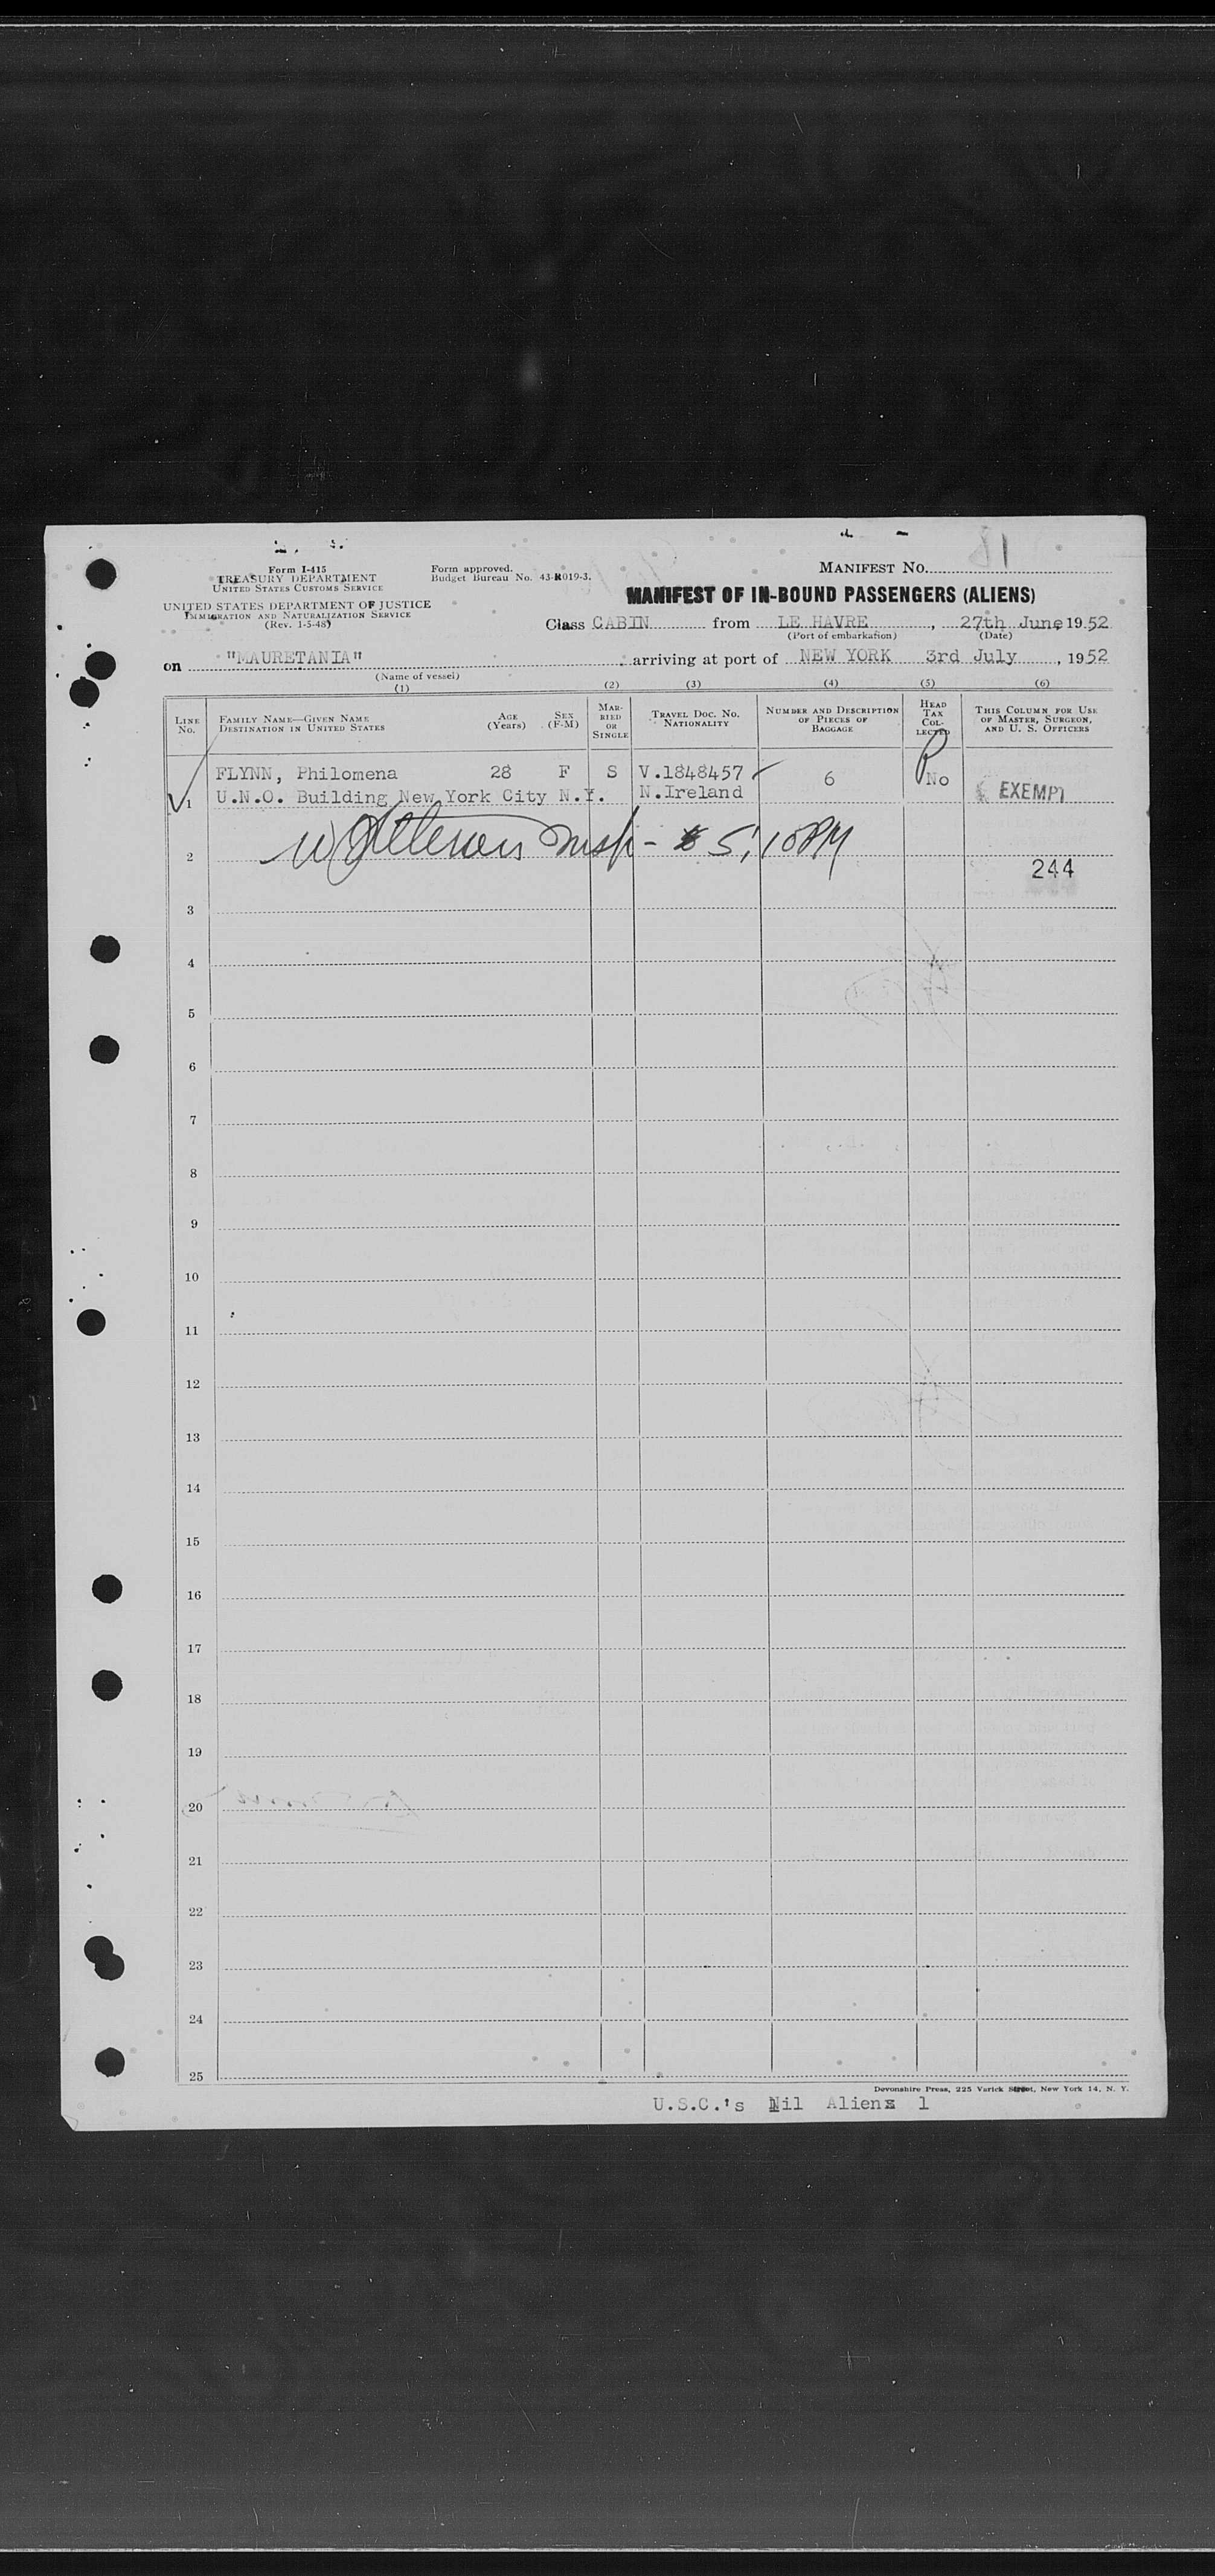 Form I-415
TREASURY DEPARTMENT
UNITED STATES CUSTOMS SERVICE
UNITED STATES DEPARTMENT OF JUSTICE
IMMIGRATION AND NATURALIZATION SERVICE
(Rev. 1-5-48)
Form approved.
Budget Bureau No. 43-R019-3.
MANIFEST NO.
MANIFEST OF IN-BOUND PASSENGERS (ALIENS)
Class CABIN from LE HAVRE, 27th June, 1952
(Port of embarkation) (Date)
on "MAURETANIA" arriving at port of NEW YORK 3rd July, 1952
(Name of vessel)
(1) (2) (3) (4) (5) (6)
LINE NO.
FAMILY NAME—GIVEN NAME
DESTINATION IN UNITED STATES
AGE (Years)
SEX (F-M)
MARRIED OR SINGLE
TRAVEL DOC. NO.
NATIONALITY
NUMBER AND DESCRIPTION OF PIECES OF BAGGAGE
HEAD TAX COLLECTED
THIS COLUMN FOR USE OF MASTER, SURGEON, AND U. S. OFFICERS
1 FLYNN, Philomena 28 F S V.1848457 6 No EXEMPT
U.N.O. Building New York City N.Y. N.Ireland
2 Insp - 5:10 PM
244
3
4
5
6
7
8
9
10
11
12
13
14
15
16
17
18
19
20
21
22
23
24
25
Devonshire Press, 225 Varick Street, New York 14, N. Y.
U.S.C.'s Nil Aliens 1